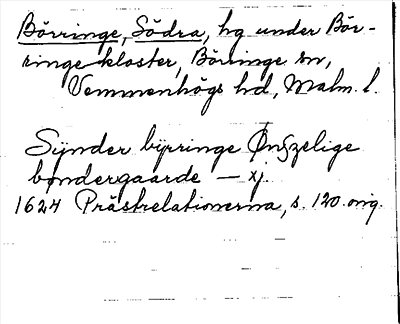 Börringe, Södra, hg under Bör-
ringekloster, Börringe sn,
Vemmenhögs hd, Malm. l.
Sünder byrringe Ønszelige
bøndergaarde — xj.
1624 Prästrelationerna, s. 120. orig.